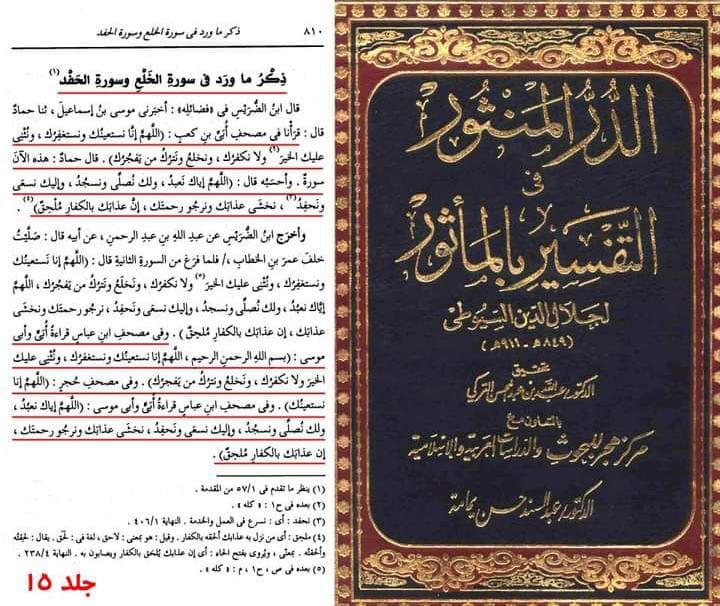 ٨١٠
ذكر ما ورد فى سورة الخلع وسورة الحفد
ذِكْرُ ما ورَد فى سورةِ الخَلْعِ وسورةِ الحَفْد (١)
قال ابنُ الضُّرَيْسِ فى «فضائلِه» : أخبَرنى موسى بنُ إسماعيلَ ، ثنا حمادٌ
قال : قرَأْنا فى مصحفِ أُبَىِّ بنِ كعبٍ : (اللهمَّ إنَّا نستعينُك ونستغفِرُك ، ونُثْنِى
عليك الخيرَ (٢) ولا نكفرُك ، ونخلعُ ونَترُكُ من يَفجُرُك) . قال حمادٌ : هذه الآنَ
سورةٌ . وأحسَبُه قال : (اللهمَّ إياك نعبدُ ، ولك نُصلِّى ونسجُدُ ، وإليك نسعَى
ونَحفِدُ (٣) ، نخشَى عذابَك ونرجُو رحمتَك ، إنَّ عذابَك بالكفارِ مُلْحِقٌ) (٤) .
وأخرَج ابنُ الضُّرَيْسِ عن عبدِ اللهِ بنِ عبدِ الرحمنِ ، عن أبيه قال : صَلَّيْتُ
خلفَ عمرَ بنِ الخطابِ ، / فلما فرَغ من السورةِ الثانيةِ قال : (اللهمَّ إنا نَستعينُك
ونستغفِرُك ، ونُثْنِى عليك الخيرَ (٥) ولا نَكفُرُك ، ونخلعُ ونترُكُ من يَفجُرُك ، اللهمَّ
إيَّاك نعبُدُ ، ولك نُصلِّى ونسجدُ ، وإليك نسعَى ونَحفِدُ ، نرجو رحمتَك ونخشَى
عذابَك ، إن عذابَك بالكفارِ مُلحِقٌ) . وفى مصحفِ ابنِ عباسٍ قراءةُ أُبَىٍّ وأبى
موسى : (بسم اللهِ الرحمنِ الرحيم ، اللهمَّ إنا نستعينُك ونستغفرُك ، ونُثْنِى عليك
الخيرَ ولا نكفرُك ، ونَخلَعُ ونترُكُ من يَفجرُك) . وفى مصحفِ حُجرٍ : (اللهمَّ إنا
نستعينُك) . وفى مصحفِ ابنِ عباسٍ قراءةُ أُبَىٍّ وأبى موسى : (اللهمَّ إياك نعبُدُ ،
ولك نُصلِّى ونسجُدُ ، وإليك نسعَى ونَحفِدُ ، نخشَى عذابَك ونرجو رحمتَك ،
إن عذابَك بالكفارِ مُلحِقٌ) .
(١) ينظر ما تقدم فى ٥٧/١ من المقدمة .
(٢) بعده فى ح١ : « كله » .
(٣) نحفد : أى : نسرع فى العمل والخدمة . النهاية ٤٠٦/١ .
(٤) ملحق : أى من نزل به عذابك ألحقه بالكفار . وقيل : هو بمعنى : لاحق ، لغة فى : لَحَق . يقال : لحقتُه
وألحقته . بمعنًى ، ويُروى بفتح الحاء : أى إن عذابك يُلحَق بالكفار ويصابون به . النهاية ٢٣٨/٤ .
(٥) بعده فى ص ، ح١ ، م : « كله » .
جلد ١٥
الدُّرُّ المَنْثُورُ
فى
التَّفْسِيرِ بِالمَأْثُورِ
لجلال الدين السيوطى
(٨٤٩هـ - ٩١١هـ)
تحقيق
الدكتور/ عبد الله بن عبد المحسن التركى
بالتعاون مع
مركز هجر للبحوث والدراسات العربية والإسلامية
الدكتور/ عبد السند حسن يمامة